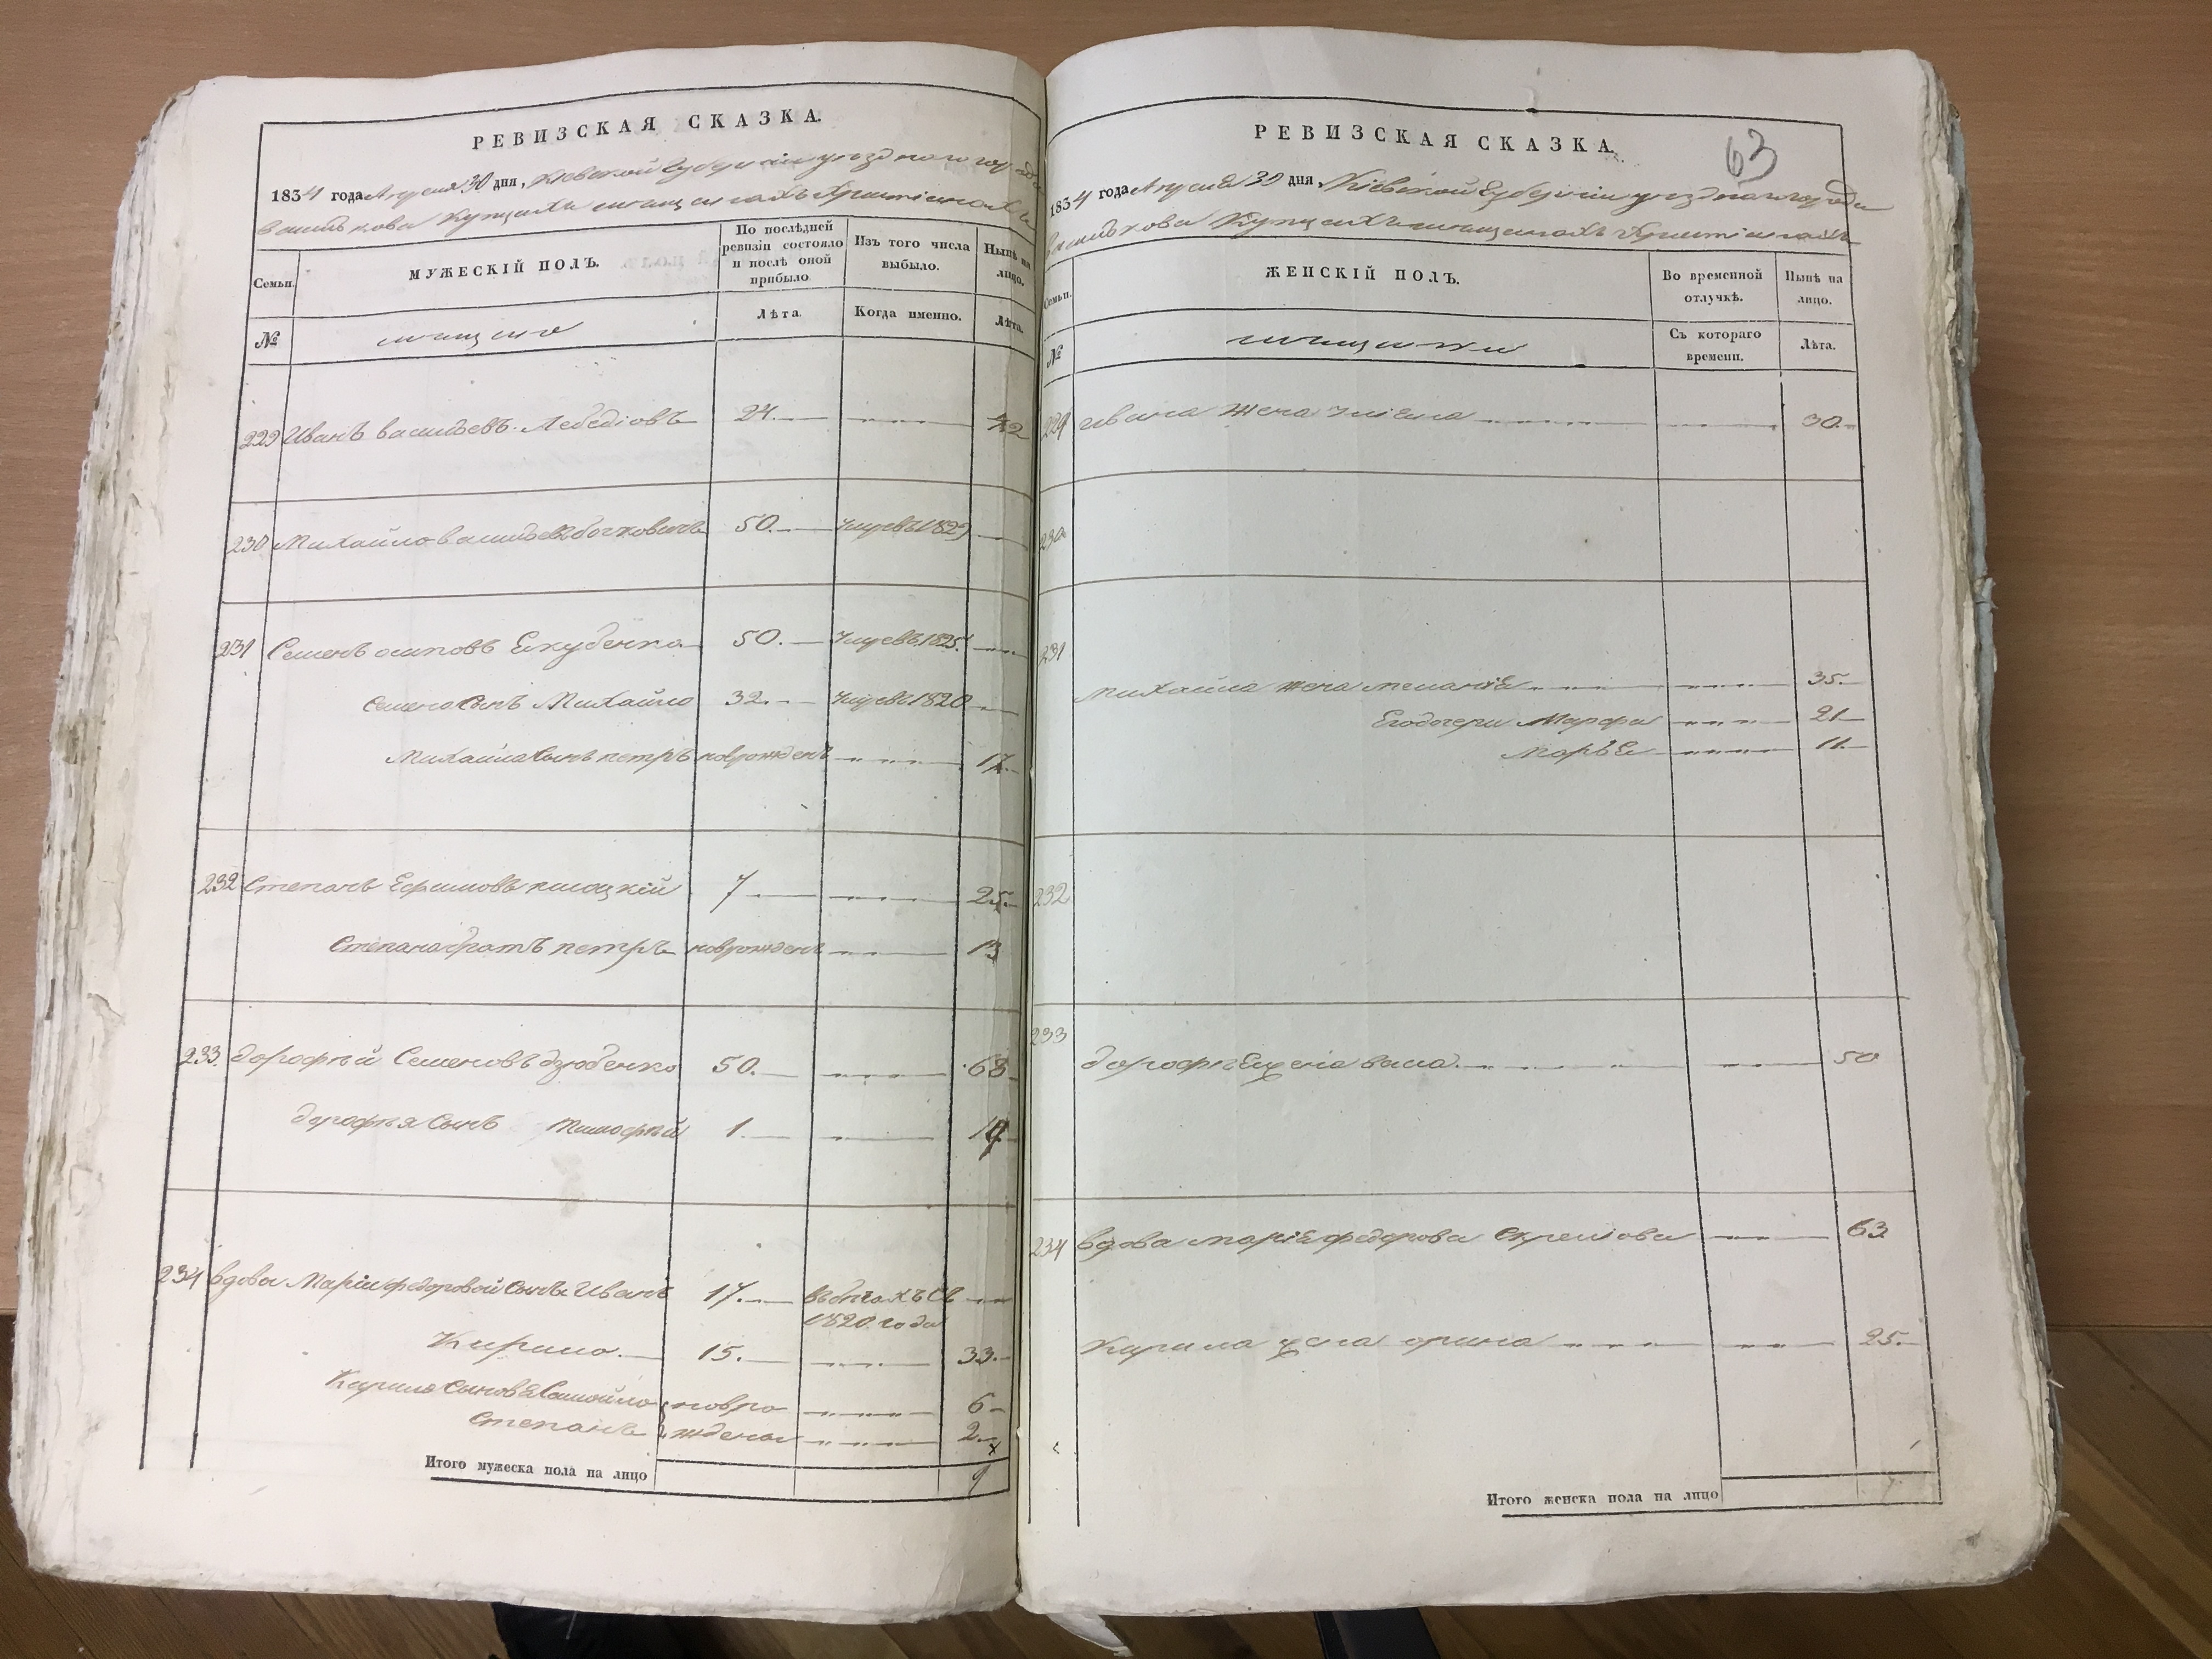 РЕВИЗСКАЯ СКАЗКА.
1834 года Апреля 30 дня, Кіевской Губерніи уезднаго города
василькова Купцахъ мещанахъ Христіанахъ
Семьи.
МУЖЕСКІЙ ПОЛЪ.
По послѣдней ревизіи состояло и послѣ оной прибыло
Изъ того числа выбыло.
Нынѣ на лицо.
№
мещане
Лѣта.
Когда именно.
Лѣта.
229 Иванъ васильевъ Лебедіовъ 24. 42
230 Михайло васильевъ 50. умревъ 1829
231 Семенъ осиповъ 50. умревъ 1825
Семена Сынъ Михайло 32. умревъ 1820
Михайла Сынъ петръ новрожденъ 17.
232 Степанъ Ефимовъ 7 25.
Степана братъ петръ новрожденъ 13
233. дорофѣй Семеновъ дзюбенко 50. 68
дорофѣя Сынъ Тимофѣй 1. 19
234 вдовы Маріи федоровой Сынъ Иванъ 17. въ бегахъ Съ
1820 года
Кирило. 15. 33.
Кирила Сыновя Самойло новро 6
Степанъ ждены 2.
Итого мужеска пола на лицо 9
РЕВИЗСКАЯ СКАЗКА.
63
1834 года Апреля 30 дня, Кіевской Губерніи уезднаго города
василькова Купцахъ мещанахъ Христіанахъ
Семьи.
ЖЕНСКІЙ ПОЛЪ.
Во временной отлучкѣ.
Нынѣ на лицо.
№
мещанки
Съ котораго времени.
Лѣта.
229 ивана жена 30.
230
231
михайла жена меланія 35.
Егодочери Марфа 21
Марья 11.
232
233
дорофѣя 50
234 вдова марія федорова 63
Кирила жена орина 25.
Итого женска пола на лицо 7.